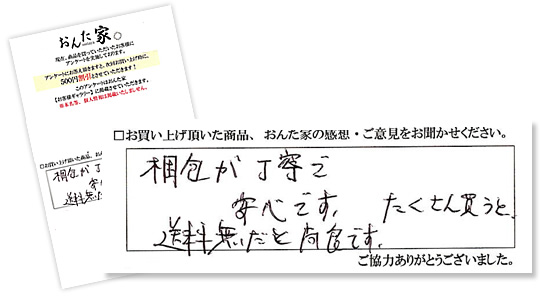 おんた家。
現在、商品を買っていただいたお客様に
アンケートを実施しております。
アンケートにお答え頂きますと、次回お買い上げ時に、
500円割引とさせていただきます!
このアンケートはおんた家
【お客様ギャラリー】に掲載させていただきます。
※お名前等、個人情報は掲載いたしません。
□お買い上げ頂いた商品、おん
梱包が丁
安
送料無だ
□お買い上げ頂いた商品、おんた家の感想・ご意見をお聞かせください。
梱包が丁寧で
安心です。 たくさん買うと、
送料無だと尚良です。
ご協力ありがとうございました。